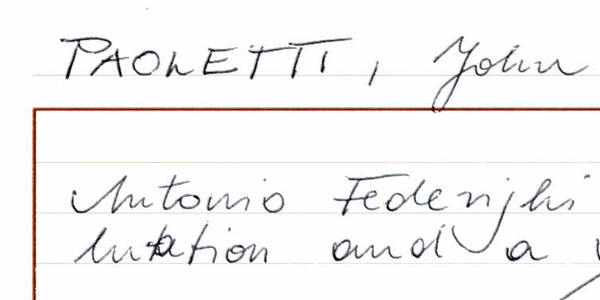 PAOLETTI, John
Antonio Federighi
luation and a